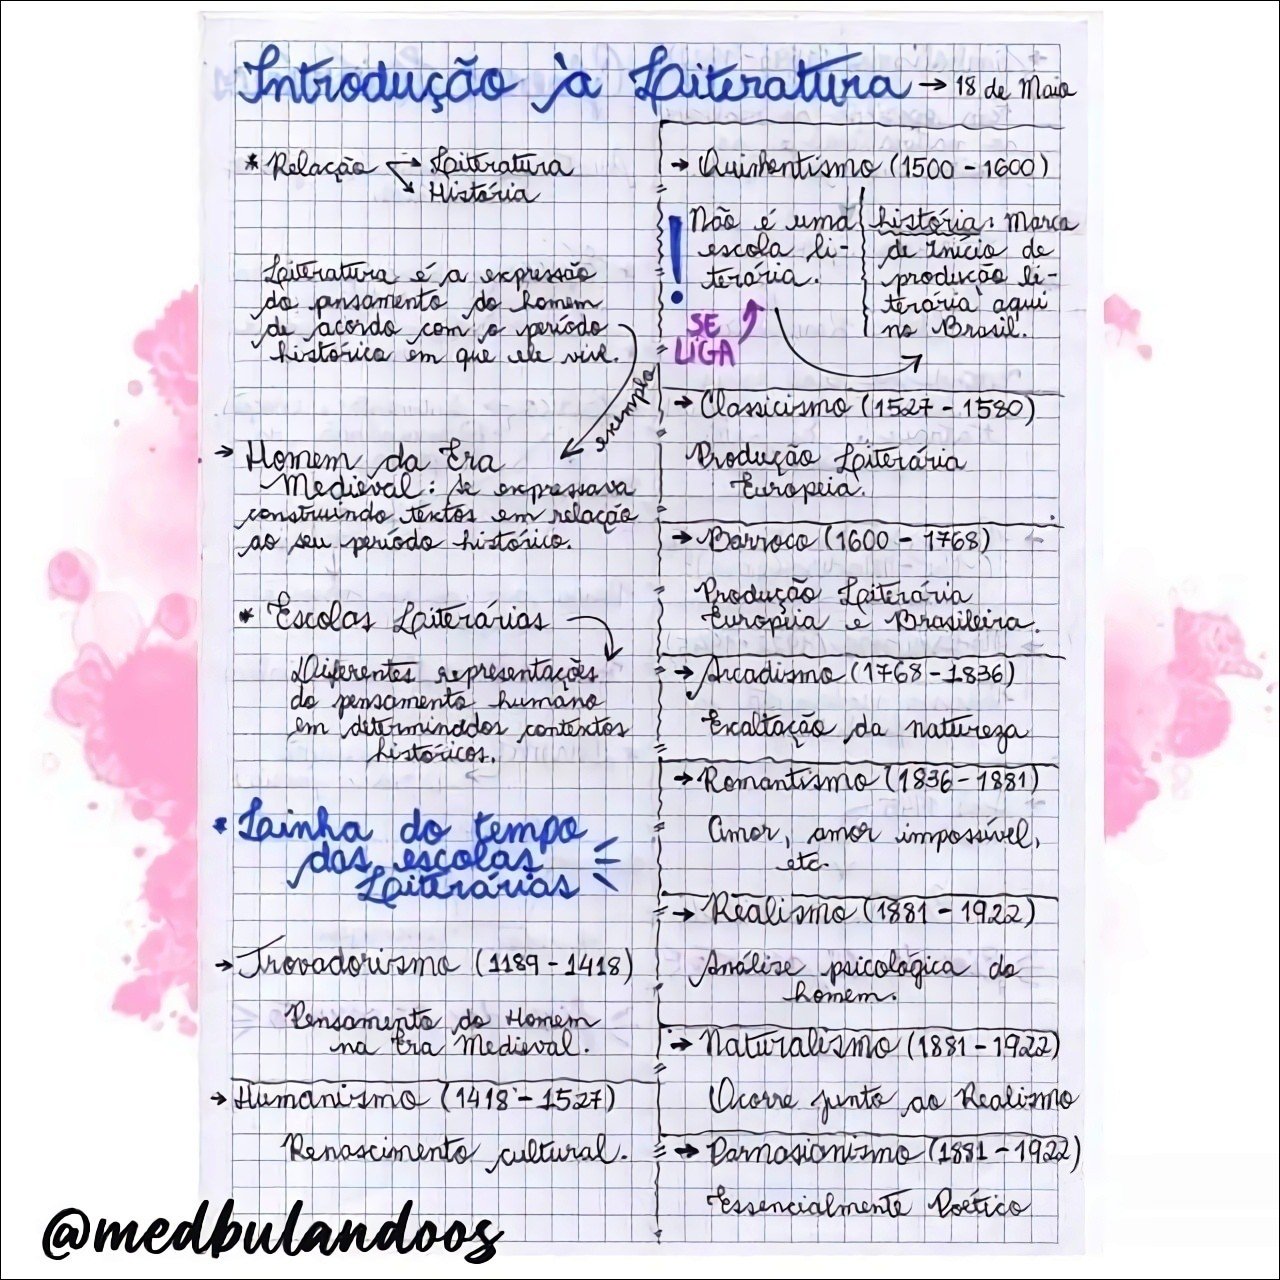 Introdução à Literatura → 18 de Maio
* Relação → Literatura
→ História
Literatura é a expressão
do pensamento do homem
de acordo com o período
histórico em que ele vive.
exemplo
→ Homem da Era
Medieval: se expressava
construindo textos em relação
ao seu período histórico.
* Escolas Literárias
Diferentes representações
do pensamento humano
em determinados contextos
históricos.
* Linha do tempo
das escolas
Literárias
→ Trovadorismo (1189 - 1418)
Pensamento do Homem
na Era Medieval.
→ Humanismo (1418 - 1527)
Renascimento cultural.
→ Quinhentismo (1500 - 1600)
! Não é uma
escola li-
terária.
SE
LIGA
história: Marca
de Início de
produção li-
terária aqui
no Brasil.
→ Classicismo (1527 - 1580)
Produção Literária
Europeia.
→ Barroco (1600 - 1768)
Produção Literária
Europeia e Brasileira.
→ Arcadismo (1768 - 1836)
Exaltação da natureza
→ Romantismo (1836 - 1881)
Amor, amor impossível,
etc.
→ Realismo (1881 - 1922)
Análise psicológica do
homem.
→ Naturalismo (1881 - 1922)
Ocorre junto ao Realismo
→ Parnasianismo (1881 - 1922)
Essencialmente Poético
@medbulandoos